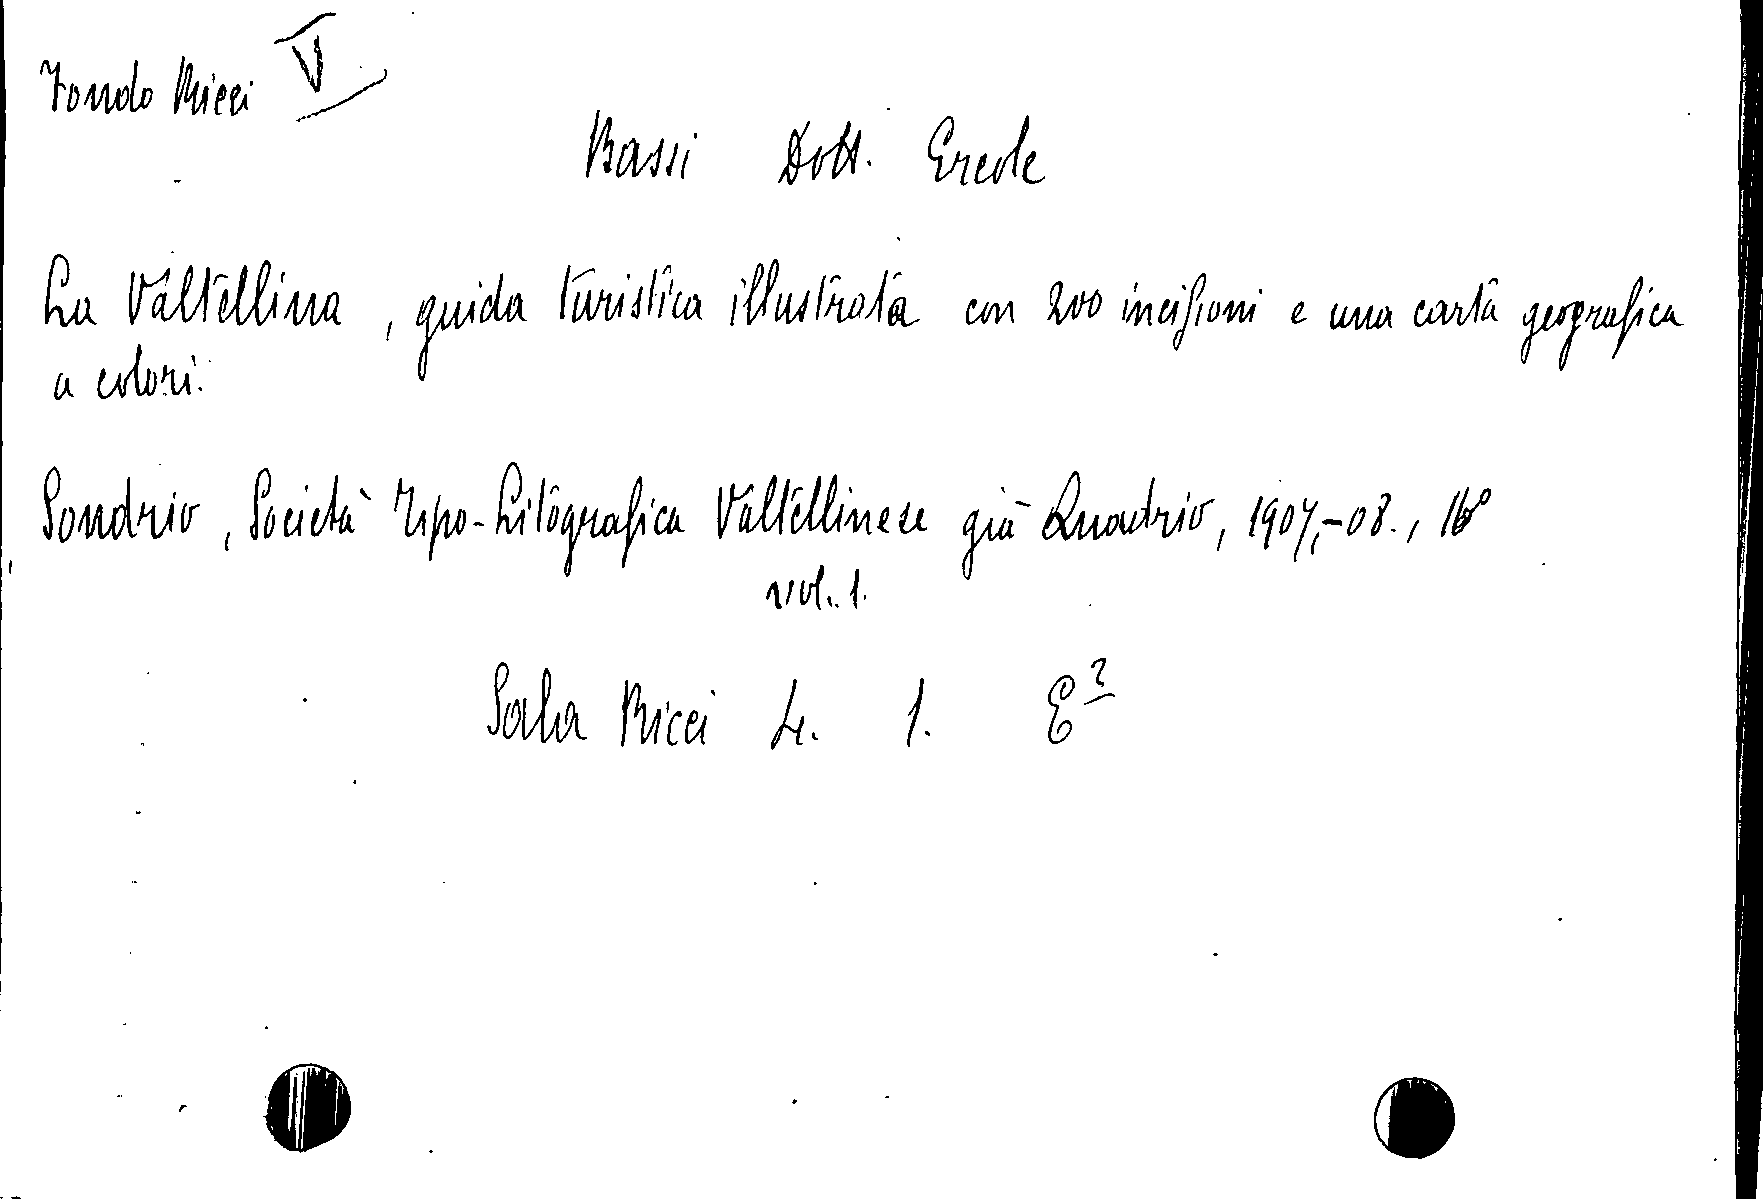 Fondo Ricci V
Bassi Dott. Ercole
La Valtellina, guida turistica illustrata con 200 incisioni e una carta geografica
a colori.
Sondrio, Società Tipo-Litografica Valtellinese già Quadrio, 1907,-08., 16°
vol. 1.
Sala Ricci 4. 1. E²